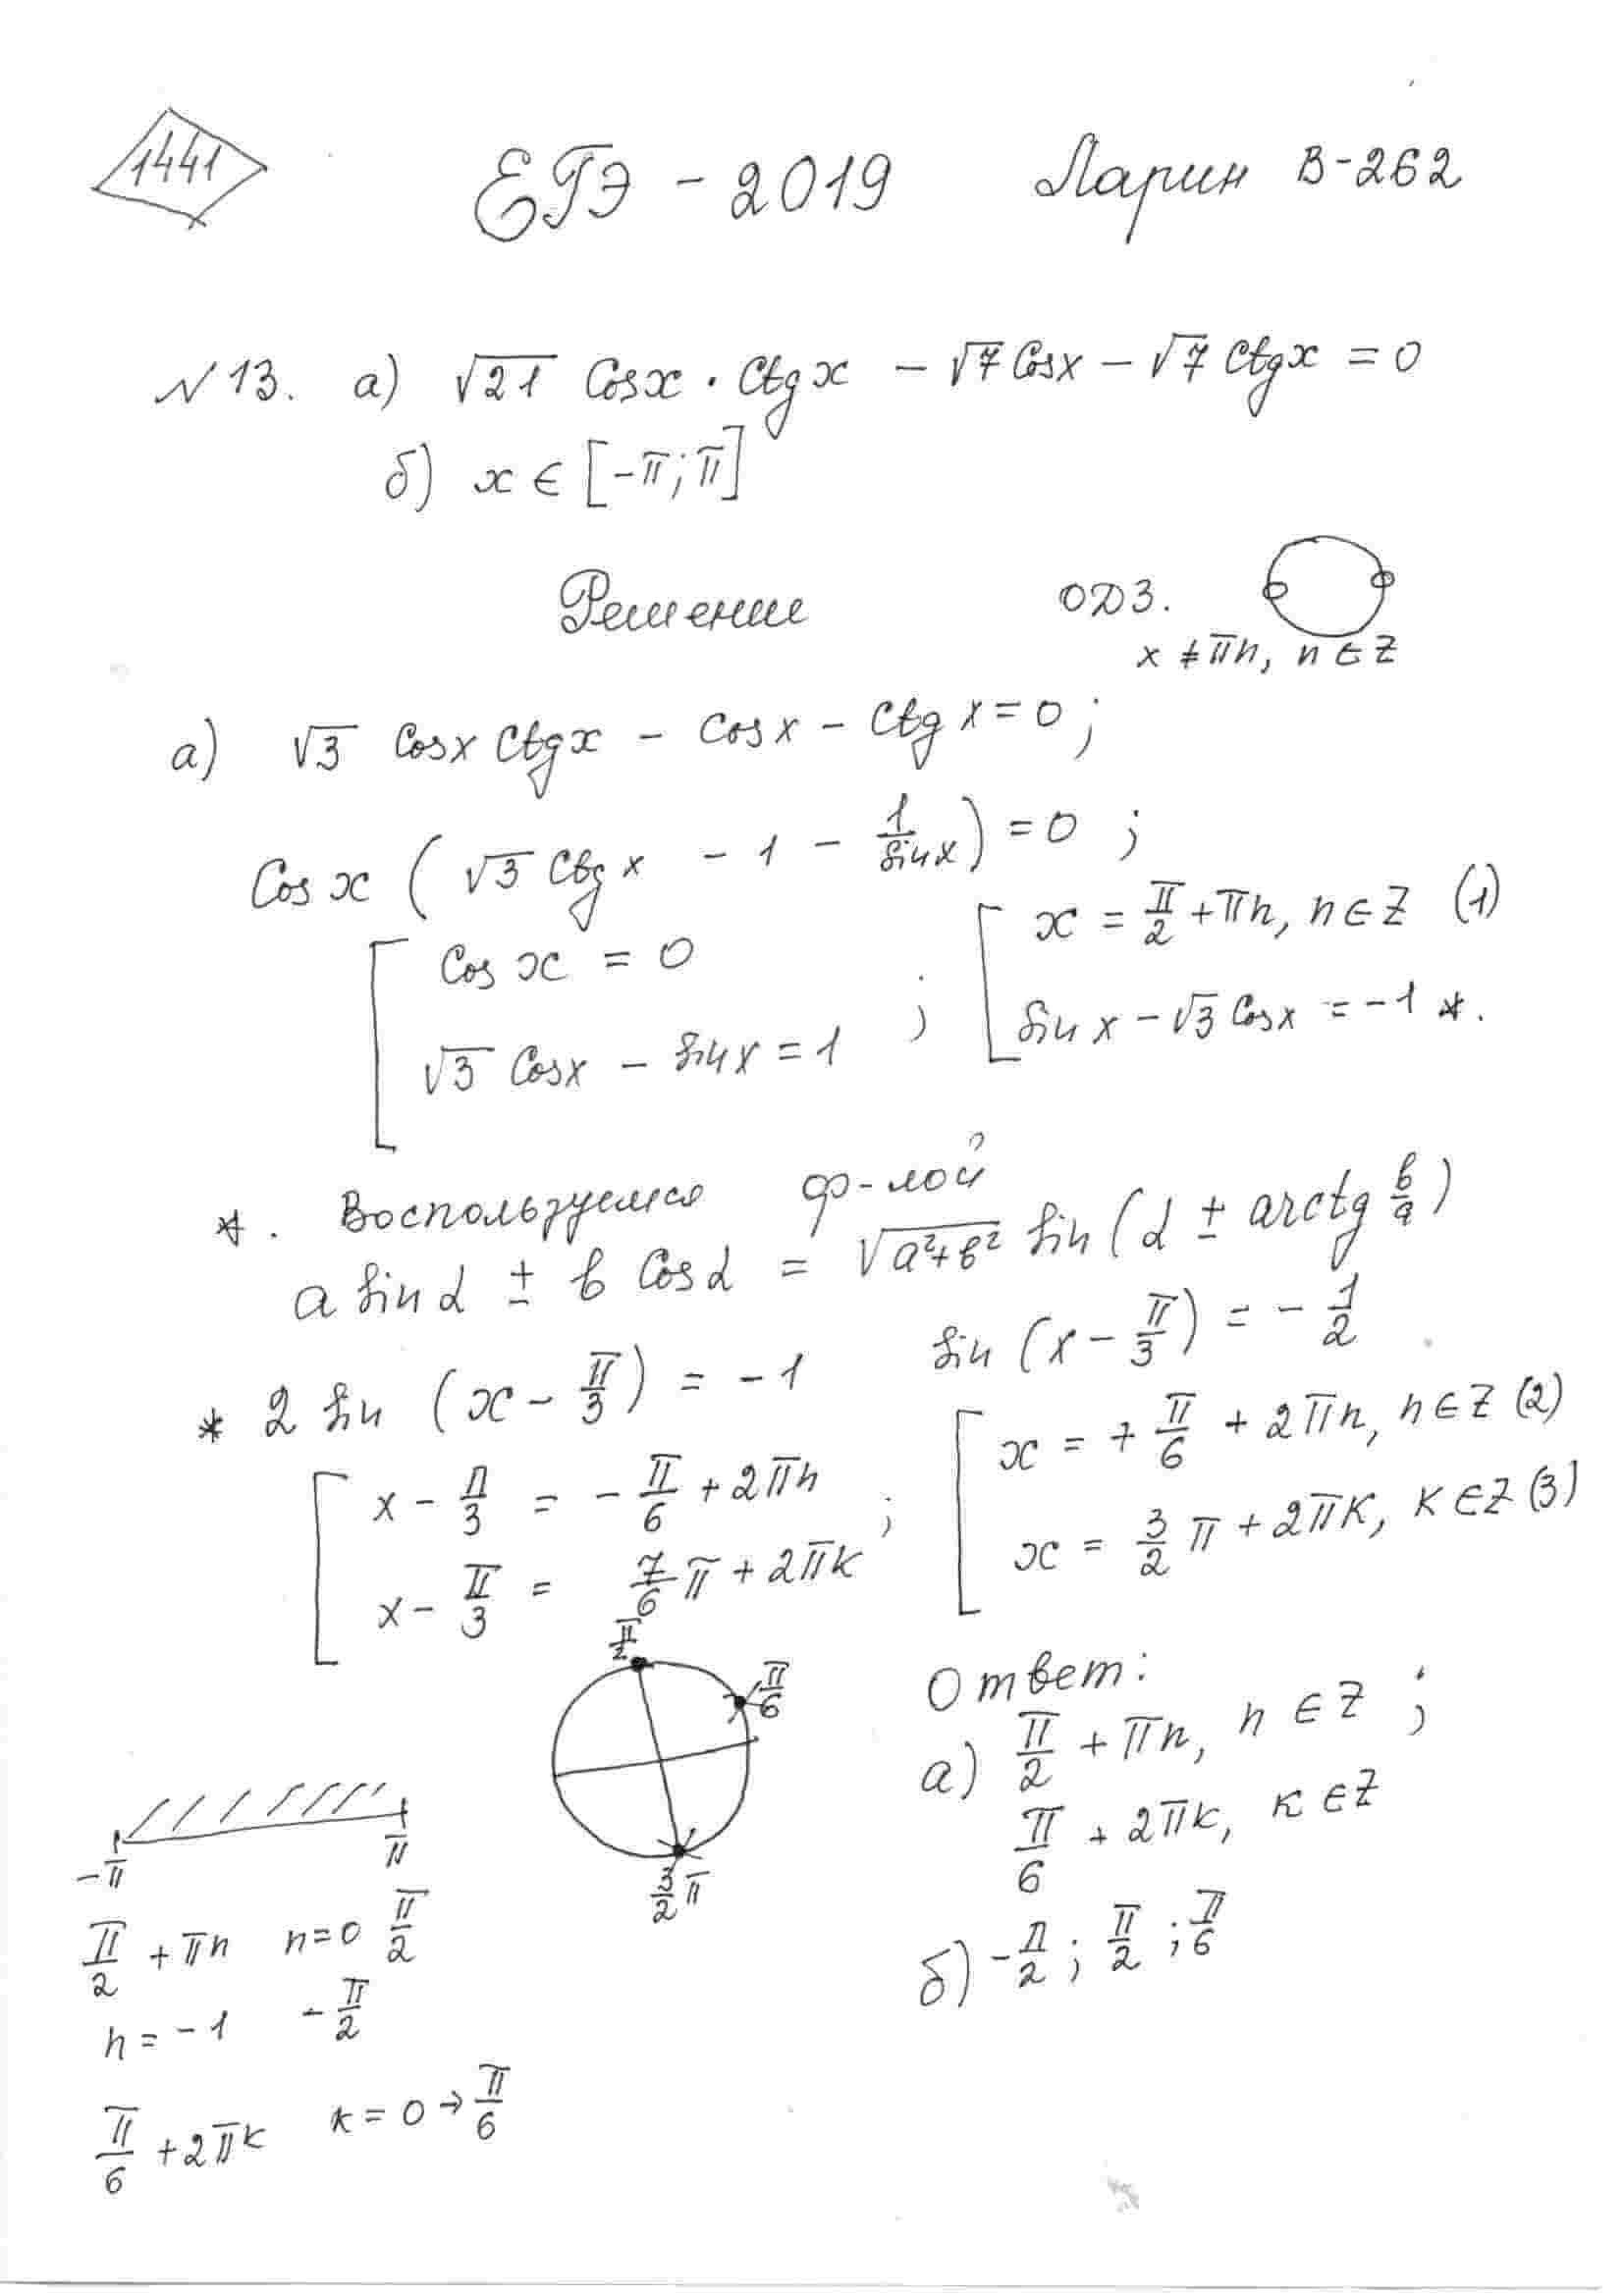 1441
ЕГЭ - 2019 Ларин В-262
№13. а) √21 Cosx · Ctgx - √7 Cosx - √7 Ctgx = 0
б) x ∈ [-π; π]
Решение ОДЗ.
x ≠ πn, n ∈ Z
а) √3 Cosx Ctgx - Cosx - Ctgx = 0 ;
Cosx (√3 Ctgx - 1 - 1/sinx) = 0 ;
[ Cosx = 0 ; [ x = π/2 + πn, n ∈ Z (1)
√3 Cosx - sinx = 1 sinx - √3 Cosx = -1 *.
*. Воспользуемся ф-лой
a sinα ± b Cosα = √(a²+b²) sin(α ± arctg b/a)
* 2 sin (x - π/3) = -1 sin (x - π/3) = - 1/2
[ x - π/3 = - π/6 + 2πn ; [ x = + π/6 + 2πn, n ∈ Z (2)
x - π/3 = 7/6 π + 2πk x = 3/2 π + 2πk, k ∈ Z (3)
π/2
π/6
3/2 π
-π π
π/2 + πn n=0 π/2
n = -1 - π/2
π/6 + 2πk k = 0 → π/6
Ответ:
а) π/2 + πn, n ∈ Z ;
π/6 + 2πk, k ∈ Z
б) - π/2 ; π/2 ; π/6